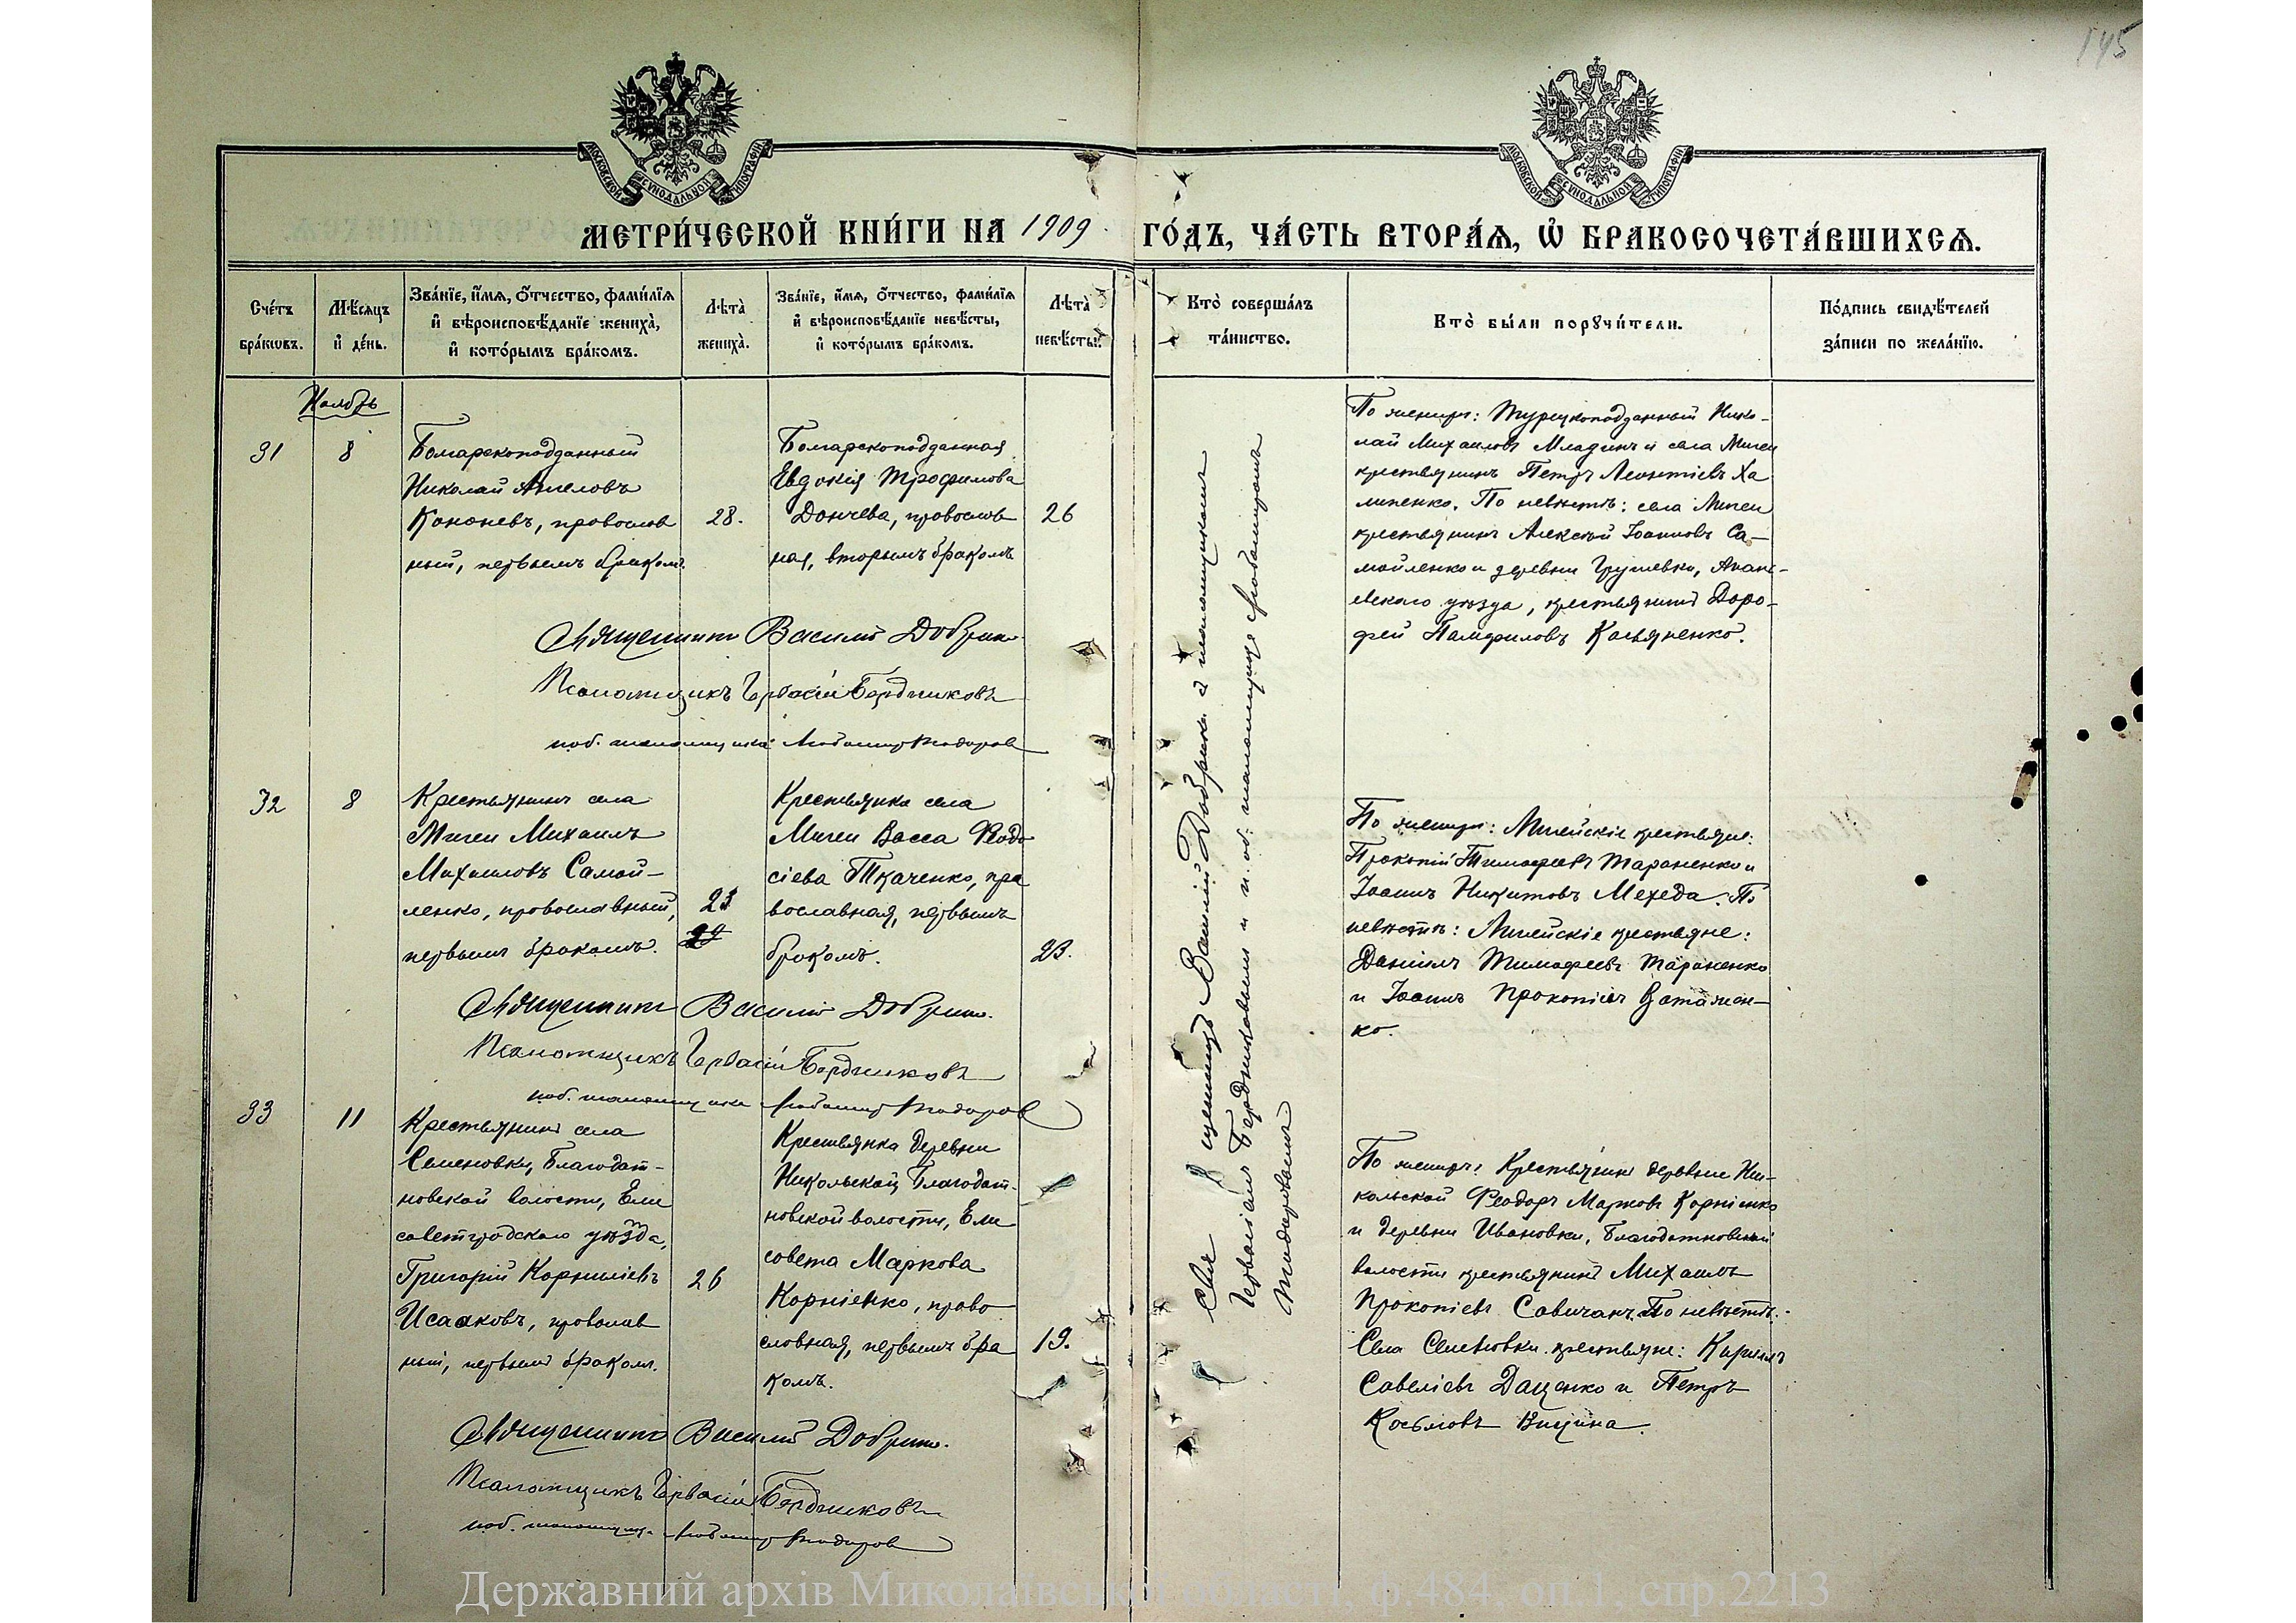 145
МОСКОВСКОЙ СѴНОДАЛЬНОЙ ТИПОГРАФІИ
МОСКОВСКОЙ СѴНОДАЛЬНОЙ ТИПОГРАФІИ
МЕТРИ́ЧЕСКОЙ КНИ́ГИ НА 1909 ГО́ДЪ, ЧА́СТЬ ВТОРА́Ѧ, Ѡ҆ БРАКОСОЧЕТА́ВШИХСѦ.
Сче́тъ
бра́кѡвъ.
Мѣ́сѧцъ
и҆ де́нь.
Зва́нїе, и҆́мѧ, ѻ҆́тчество, фами́лїѧ
и҆ вѣроисповѣ́данїе жениха̀,
и҆ кото́рымъ бра́комъ.
Лѣта̀
жениха̀.
Зва́нїе, и҆́мѧ, ѻ҆́тчество, фами́лїѧ
и҆ вѣроисповѣ́данїе невѣ́сты,
и҆ кото́рымъ бра́комъ.
Лѣта̀
невѣ́сты.
Кто̀ соверша́лъ
та́инство.
Кто̀ бы́ли порꙋчи́тели.
По́дпись свидѣ́телей
за́писи по жела́нїю.
Ноябрь
31
8
Болгарскоподданный
Николай Ангеловъ
Кононевъ, православ
ный, первымъ бракомъ.
28.
Болгарскоподданная
Евдокія Трофимова
Дончева, православ
ная, вторымъ бракомъ
26
По женихѣ: Турецкоподданный Нико-
лай Михаиловъ Младинъ и села Мигеи
крестьянинъ Петръ Леонтіевъ Ха
липенко. По невѣстѣ: села Мигеи
крестьянинъ Алексѣй Іоанновъ Са-
мойленко и деревни Грушевки, Анань-
евскаго уѣзда, крестьянинъ Доро-
фей Памфиловъ Касьяненко.
Священникъ Василій Добрин
Псаломщикъ Гервасій Бердниковъ
поб. псаломщика Любомиръ Тодоровъ
Священникъ Василій Добрин съ псаломщикомъ
Гервасіемъ Бердниковымъ и и. об. псаломщика Любомиромъ
Тодоровымъ.
32
8
Крестьянинъ села
Мигеи Михаилъ
Михаиловъ Самой-
ленко, православный,
первымъ бракомъ.
23
Крестьянка села
Мигеи Васса Ѳеодо
сіева Ткаченко, пра
вославная, первымъ
бракомъ.
23.
По женихѣ: Мигейскіе крестьяне:
Прокопій Тимофеевъ Тараненко и
Іоаннъ Никитовъ Мереда. По
невѣстѣ: Мигейскіе крестьяне:
Даніилъ Тимофеевъ Тараненко
и Іоаннъ Прокопіевъ Ватажен-
ко.
Священникъ Василій Добрин
Псаломщикъ Гервасій Бердниковъ
поб. псаломщика Любомиръ Тодоровъ
33
11
Крестьянинъ села
Семеновки, Благодат-
новской волости, Ели
саветградскаго уѣзда,
Григорій Корниліевъ
Исааковъ, православ
ный, первымъ бракомъ.
26
Крестьянка деревни
Никольской, Благодат-
новской волости, Ели
савета Маркова
Корніенко, право
славная, первымъ бра
комъ.
19.
По женихѣ: Крестьянинъ деревни Ни-
кольской Ѳеодоръ Марковъ Корніенко
и деревни Ивановки, Благодатновской
волости крестьянинъ Михаилъ
Прокопіевъ Савичанъ. По невѣстѣ:
Села Семеновки крестьяне: Кириллъ
Савеліевъ Даценко и Петръ
Косьмовъ Вицина.
Священникъ Василій Добрин
Псаломщикъ Гервасій Бердниковъ
поб. псаломщика Любомиръ Тодоровъ
Державний архів Миколаївської області, ф.484, оп.1, спр.2213